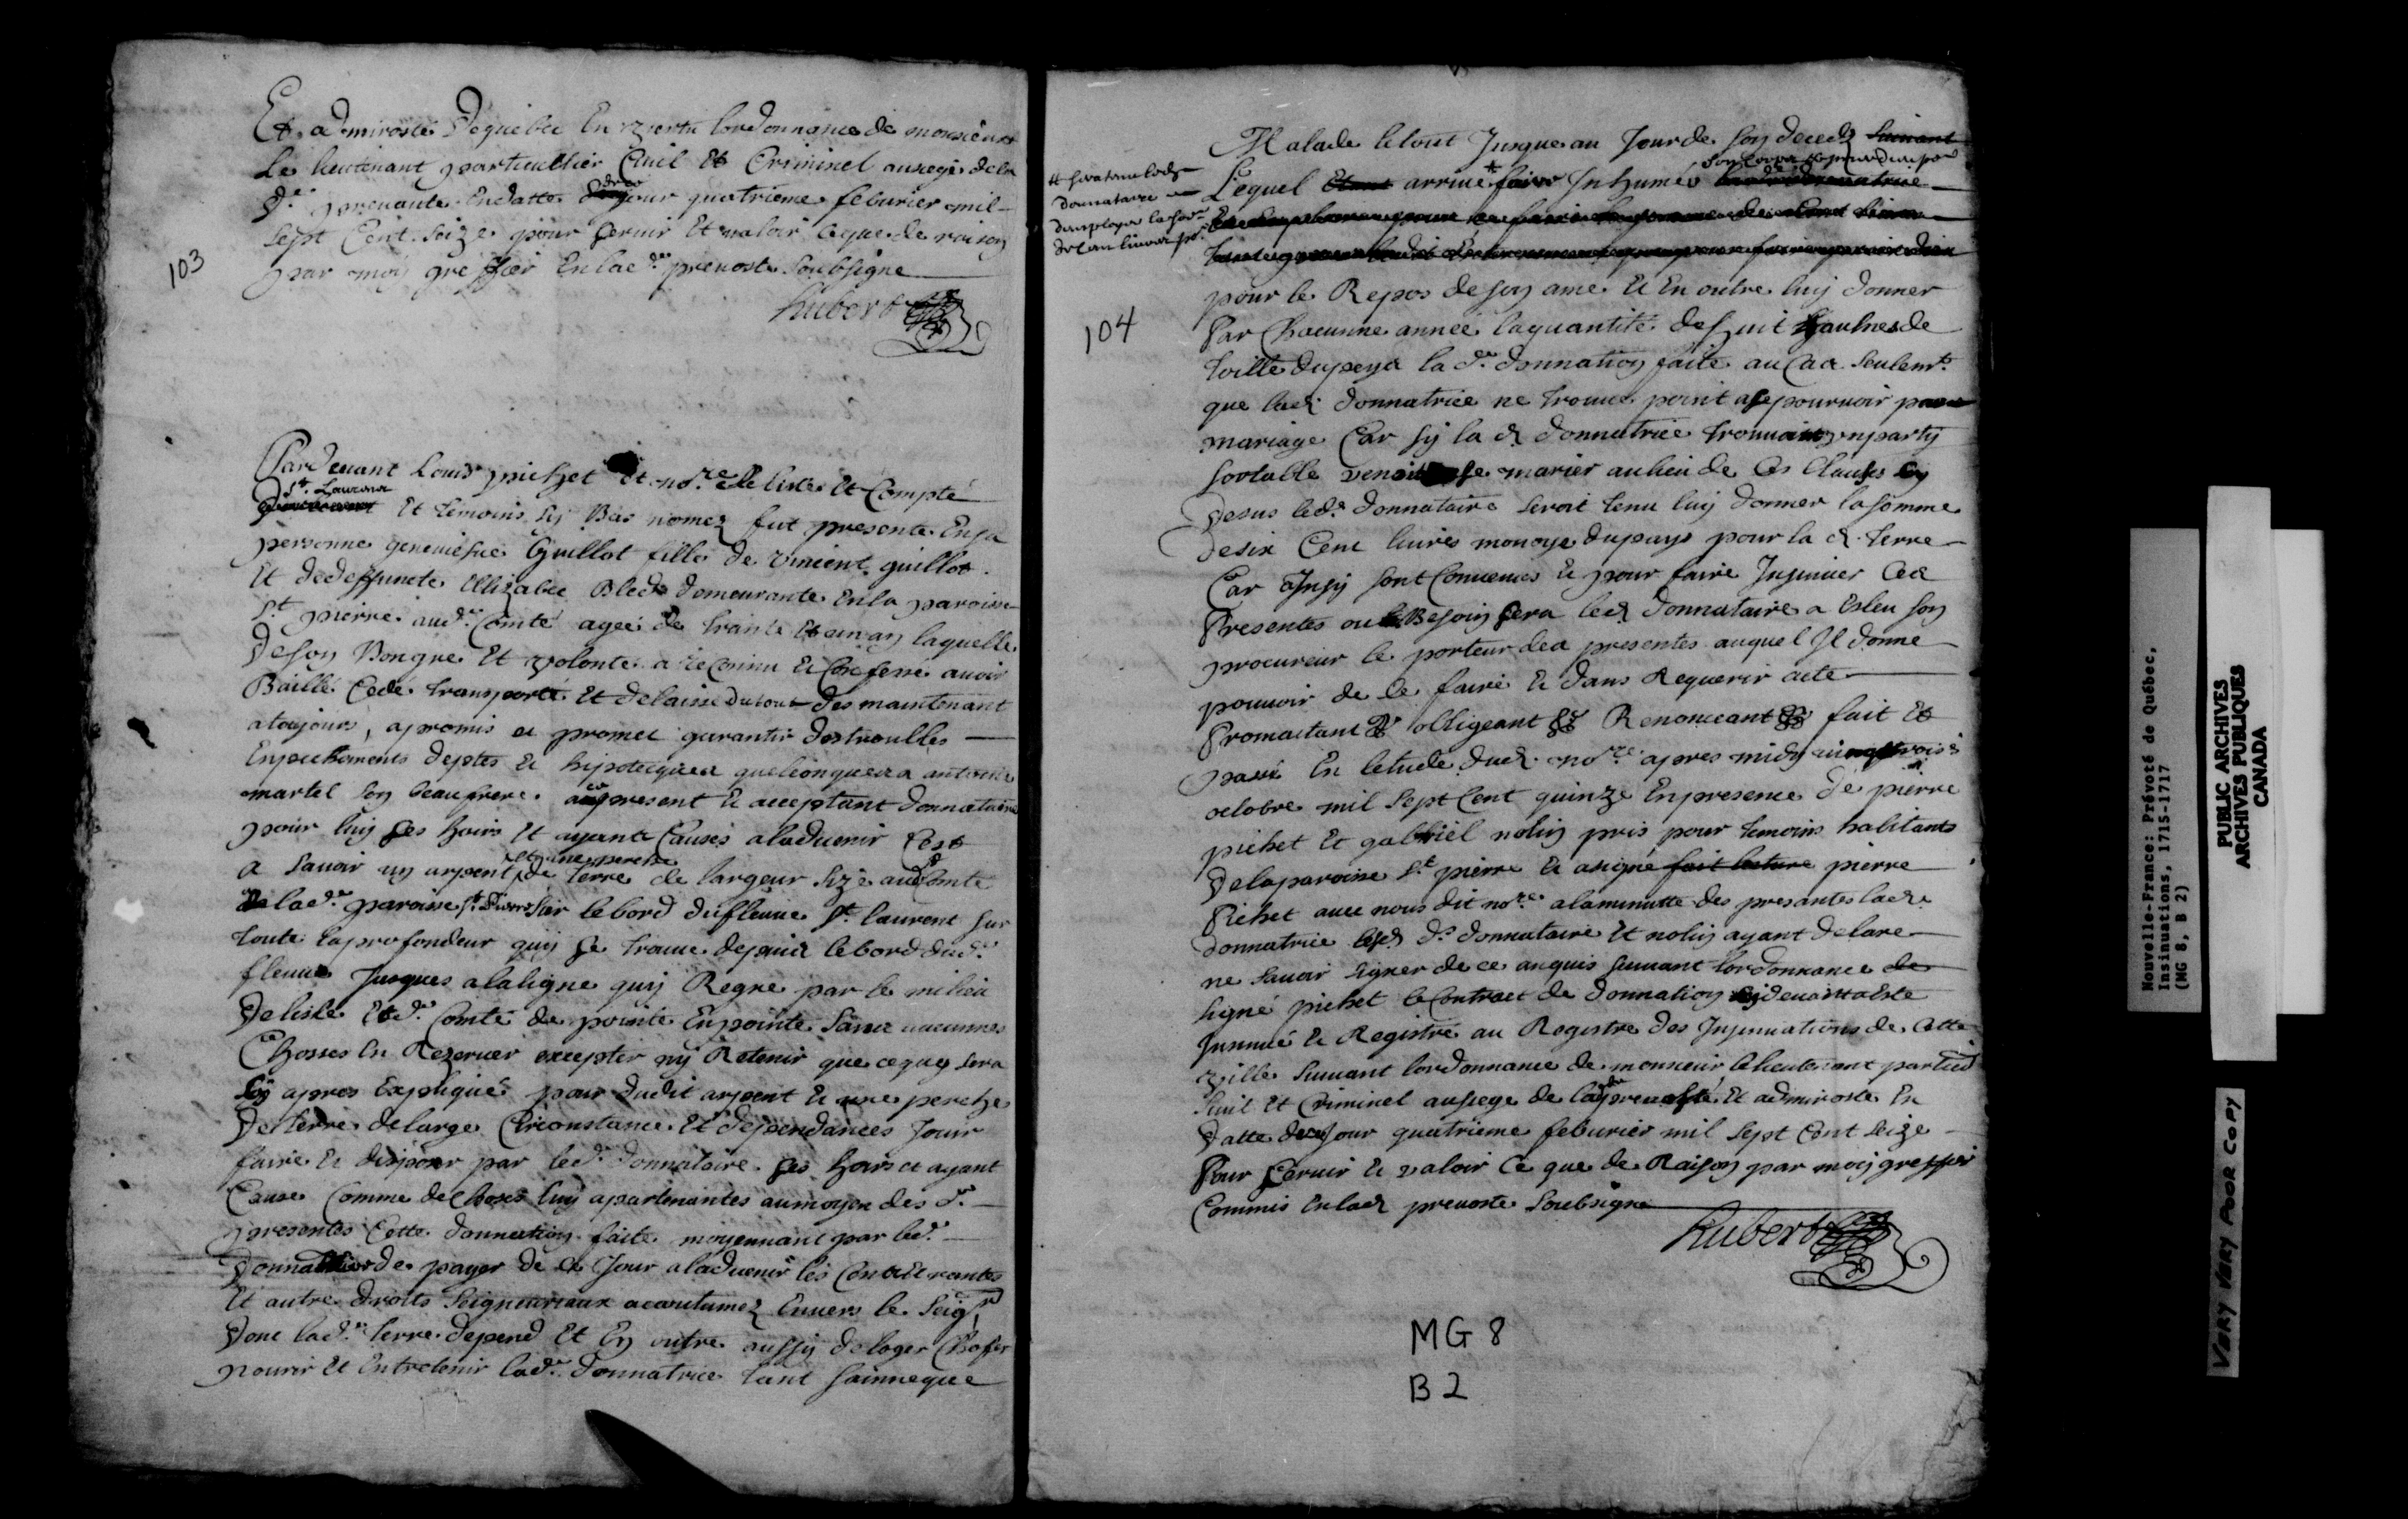 Et admirosté de quebec En vertu lordonnance de monsieur
Le lieutenant particullier Civil Et Criminel au siege de la
de. prevauté En datte de ce jour quatrieme feburier mil
Sept Cent Seize pour servir Et valoir ceque de raison
103
par moy greffier En lad. prevosté Soubsigné
hubert
Pardevant Louis pichet nore. de lisle Et Compté
St. Laurans
Et temoins sy Bas nomez fut presente En sa
personne geneviefve Guillot fille de vincent guillot
Et de deffuncte Ellizabee Bled demeurante En la paroisse
St. pierre aud. Comté ageé de trante Et un an laquelle
De son Bongre Et volonte a reConnu Et Confessé avoir
Baillé Cedé transporté Et delaissé du tout des maintenant
atoujours, apromis et promet garantir des troubles
Enpeschements deptes Et hipotecques quelconques a antoine
martel son beau frere a ce present Et acceptant donnataire
pour luy ses hoirs Et ayants Causes aladvenir C'est
Et une perche
a savoir un arpent de terre de largeur sizé aud. Comté
de lad. paroisse St. pierre sur lebord du fleuve St. laurent sur
toute la profondeur quy se trouve depuis lebord dud.
fleuve Jusques alaligne quy Regne par le milieu
De lisle Et d. Comté de pointe En pointe sans aucunnes
Chosses En Rezerver excepter ny Retenir que ceque sera
sy apres Expliqué pour dudit arpent Et une perche
De terre de large Circonstance Et dependances Jouir
faire Et disposer par led. donnataire ses hoirs et ayant
Cause Comme de choses luy apartenantes aumoyen des d.
presentes Cette donnation faite moyennant par led.
Donnataire de payer de ce Jour aladvenir les Cens Et rantes
Et autre droits Seigneuriaux acoutumez Envers le Seigr.
Dont lad. terre depend Et En outre aussy de loger Chofer
nourir Et Entretenir lad. donnatrice tant sainne que
Malade letout Jusque au Jour de son decedz suivant
son corps
Lequel Etant arrivé faire Inhumer
# sera tenu led.
donnataire
demployer la som.
104
pour le Repos de son ame Et En outre luy donner
Par Chacunne anneé la quantité de huit aulnes de
toille du peys la de. donnation faite au Cas seulemt.
que lad. donnatrice ne trouve point a se pourvoir par
mariage Car sy la d. donnatrice trouvait un party
sortable venoit a se marier au lieu de Ces Clauses sy
Desus led. donnataire seroit tenu luy donner la somme
de six Cent livres monoye du pays pour la d. terre
Car Insy sont Convenus Et pour faire Insinuer Ces
Presentes ou Besoin sera led. donnataire a Esleu son
procureur le porteur des presentes auquel Il donne
pouvoir de le faire Et dans Requerir acte
Promaitant & obligeant & Renonceant & fait Et
passé En letude dud. nore. apres midy
octobre mil Sept Cent quinze En presence de pierre
pichet Et gabriel nolin pris pour temoins habitants
De la paroisse St. pierre Et a signé fait lecture pierre
Pichet avec nous dit nore. a la minutte des presantes lad.
donnatrice led. donnataire Et nolin ayant delaré
ne savoir signer de ce anquis suivant lordonnance
signé pichet le Contract de donnation sy devant a Esté
Insinué Et Registré au Registre des Insinuations de Cette
ville suivant lordonnance de monsieur le lieutenant particu.
Sivil Et Criminel au siege de la prevosté Et admirosté En
Datte de ce Jour quatrieme feburier mil Sept Cent seize
Pour servir Et valoir Ce que de Raison par moy greffier
Commis En lad. prevosté Soubsigné
hubert
MG 8
B 2
Nouvelle-France: Prévoté de Québec,
Insinuations, 1715-1717
(MG 8, B 2)
PUBLIC ARCHIVES
ARCHIVES PUBLIQUES
CANADA
VERY VERY POOR COPY